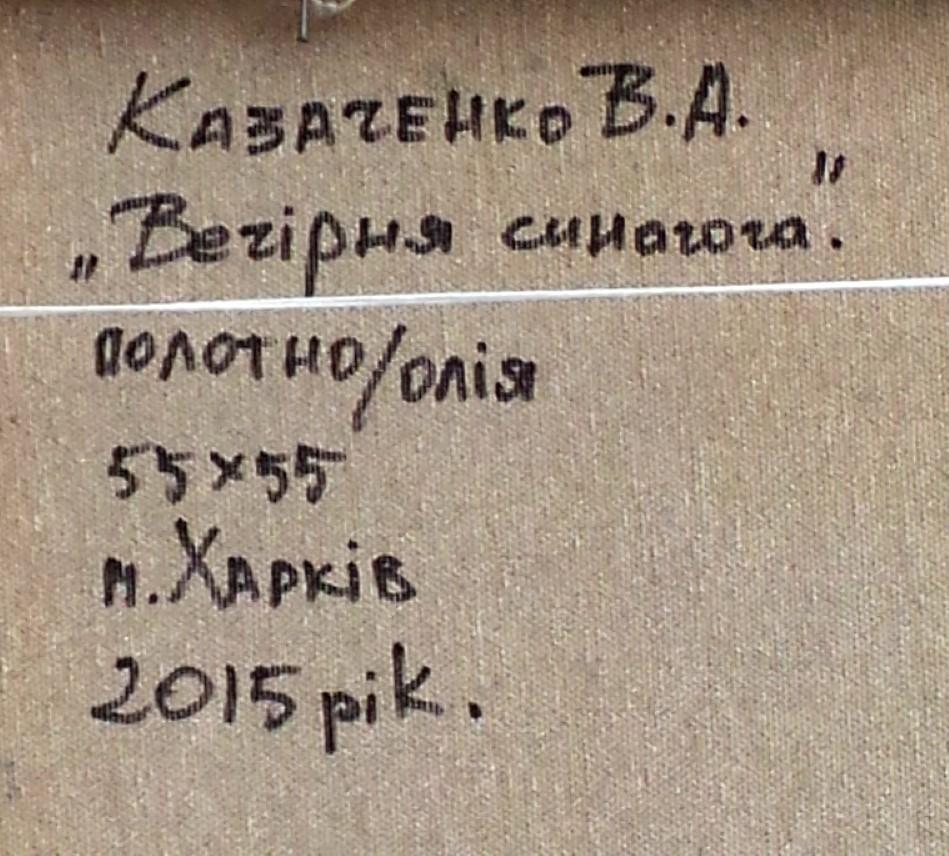 Казаченко В.А.
„Вечірня синагога".
полотно/олія
55х55
м. Харків
2015 рік.